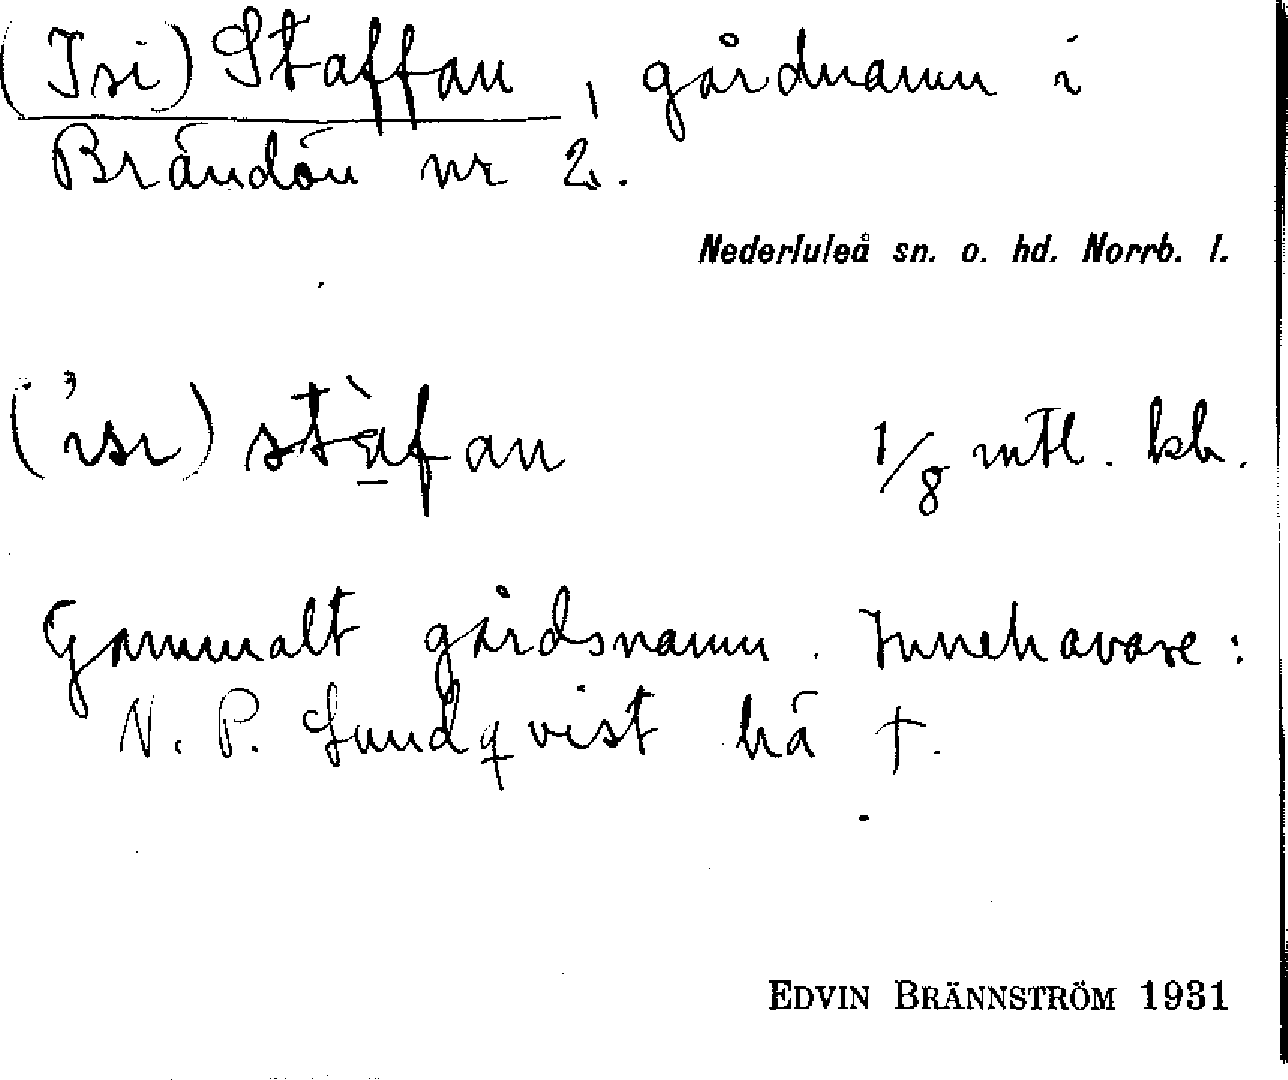 (Isi) Staffan, gårdnamn i
Brändön nr 2.
Nederluleå sn. o. hd. Norrb. l.
('ısı) stàfan
1/8 mtl. kb.
Gammalt gårdsnamn. Innehavare:
N. P. Lundqvist hä †.
EDVIN BRÄNNSTRÖM 1931